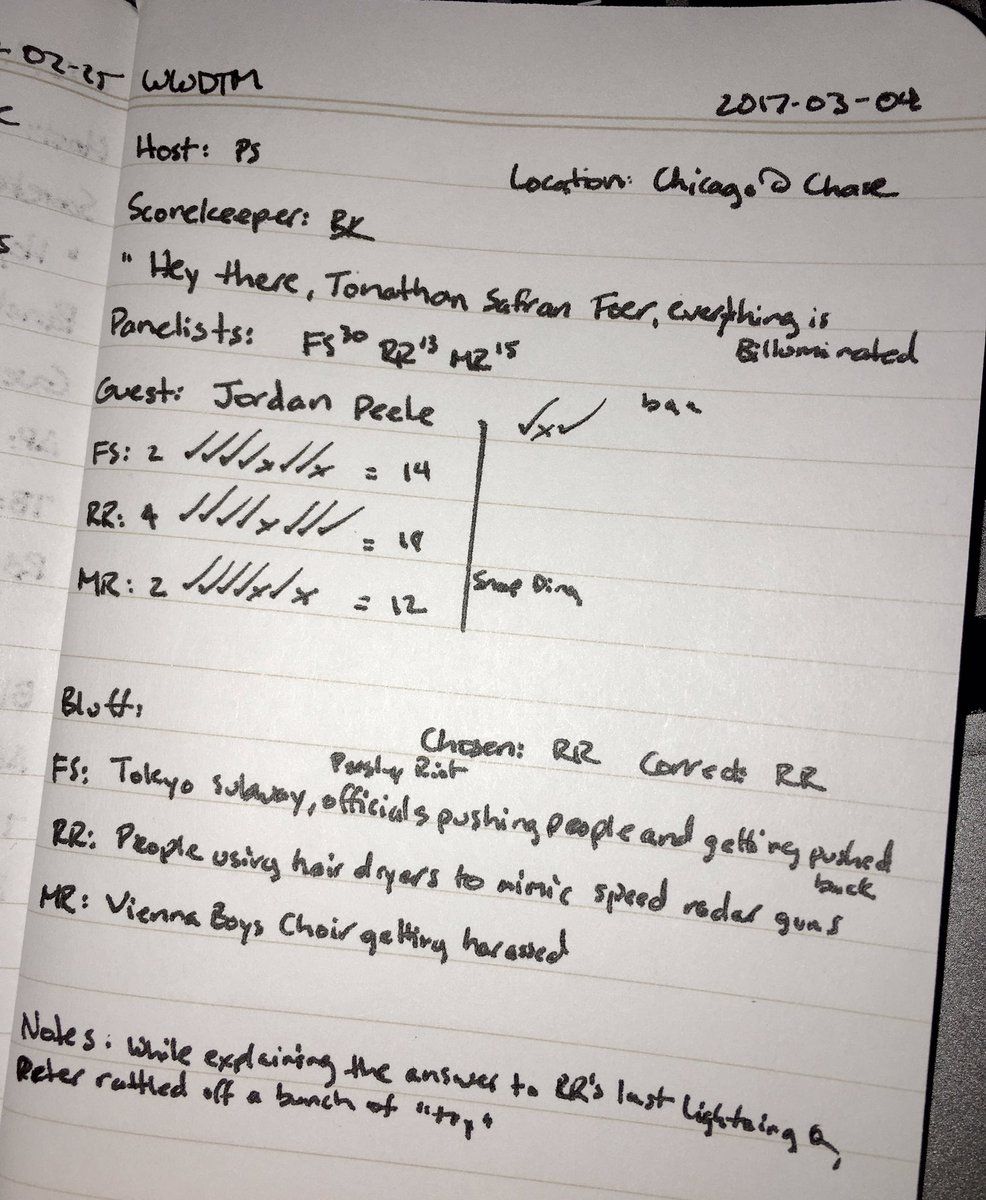 02-25 WWDTM
2017-03-04
Host: PS
Location: Chicago @ Chase
Scorekeeper: BK
" Hey there, Jonathan Safran Foer, everything is
Billuminated
Panelists: FS 30 RR 13 MR 15
Guest: Jordan Peele
✓x✓
FS: 2 ✓✓✓✓x✓✓x = 14
RR: 4 ✓✓✓✓x✓✓✓ = 18
MR: 2 ✓✓✓✓x✓x = 12
Snap Ding
Bluff:
Chosen: RR Correct: RR
FS: Tokyo subway, officials pushing people and getting pushed
back
RR: People using hair dryers to mimic speed radar guns
MR: Vienna Boys Choir getting harassed
Notes: While explaining the answer to RR's last Lightning Q,
Peter rattled off a bunch of